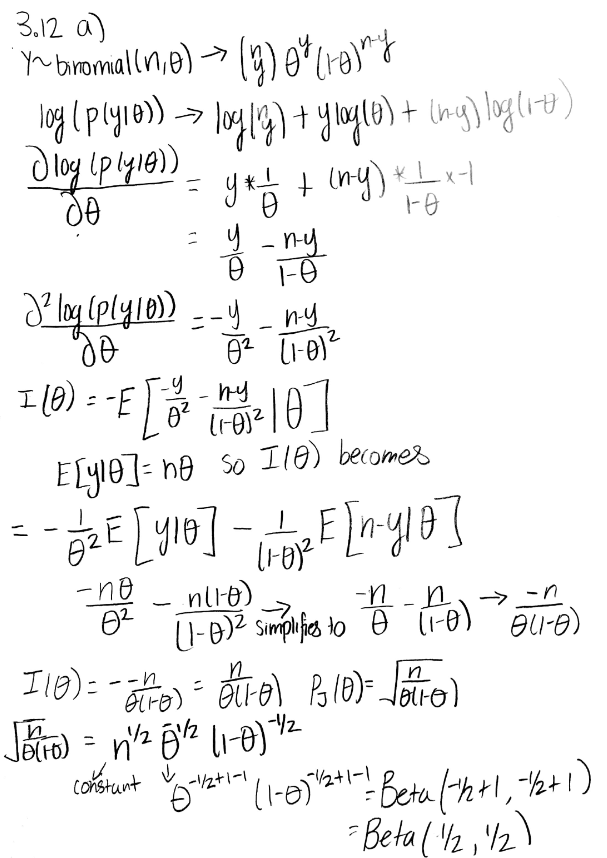 3.12 a)
Y~binomial(n,θ) → (n y) θ^y (1-θ)^n-y
log(p(y|θ)) → log(n y) + y log(θ) + (n-y) log(1-θ)
∂log(p(y|θ))/∂θ = y * 1/θ + (n-y) * 1/(1-θ) × -1
= y/θ - (n-y)/(1-θ)
∂² log(p(y|θ))/∂θ = -y/θ² - (n-y)/(1-θ)²
I(θ) = -E[-y/θ² - (n-y)/(1-θ)² | θ]
E[y|θ] = nθ so I(θ) becomes
= - 1/θ² E[y|θ] - 1/(1-θ)² E[n-y|θ]
-nθ/θ² - n(1-θ)/(1-θ)² → simplifies to -n/θ - n/(1-θ) → -n/θ(1-θ)
I(θ) = - -n/θ(1-θ) = n/θ(1-θ) P_J(θ) = √(n/θ(1-θ))
√(n/θ(1-θ)) = n^1/2 θ^-1/2 (1-θ)^-1/2
constant θ^-1/2+1-1 (1-θ)^-1/2+1-1 = Beta(-1/2+1, -1/2+1)
= Beta(1/2, 1/2)